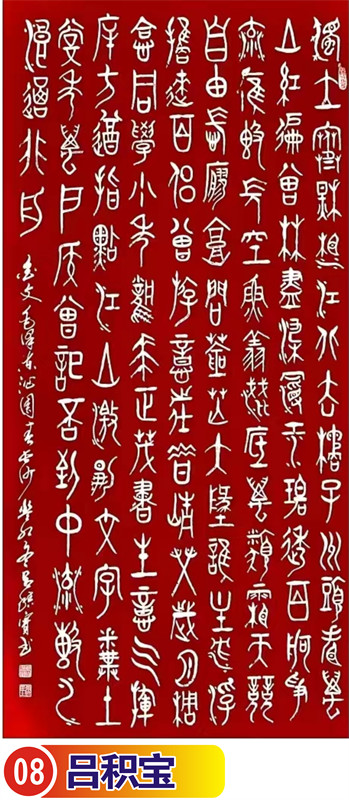 獨立寒秋湘江北去橘子洲頭看萬
山紅遍曾林盡染漫江碧透百舸爭
流鷹擊長空魚翔淺底萬類霜天競
自由悵廖廓問蒼茫大地誰主沉浮
攜來百侶曾游意往昔崢嶸歲月稠
恰同學少年風華正茂書生意气揮
斥方遒指點江山激揚文字糞土
當年萬戶侯曾記否到中流擊水
浪遏飛舟
金文毛澤東沁園春長沙 呂積寶書
08 吕积宝